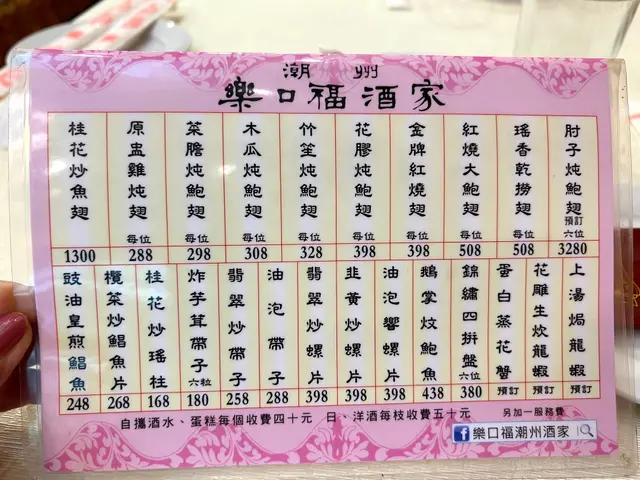 潮州
樂口福酒家
肘子炖鮑翅 預訂 六位 3280
瑤香乾撈翅 每位 508
紅燒大鮑翅 每位 508
金牌紅燒翅 每位 398
花膠炖鮑翅 每位 398
竹笙炖鮑翅 每位 328
木瓜炖鮑翅 每位 308
菜膽炖鮑翅 每位 298
原盅雞炖翅 每位 288
桂花炒魚翅 1300
上湯焗龍蝦 預訂
花雕生炊龍蝦 預訂
蛋白蒸花蟹 預訂
錦繡四拼盤 六位 380
鵝掌炆鮑魚 438
油泡響螺片 398
韭黃炒螺片 398
翡翠炒螺片 398
油泡帶子 288
翡翠炒帶子 258
炸芋茸帶子 六粒 180
桂花炒瑤柱 168
欖菜炒鯧魚片 268
豉油皇煎鯧魚 248
自攜酒水、蛋糕每個收費四十元 日、洋酒每枝收費五十元 另加一服務費
f 樂口福潮州酒家